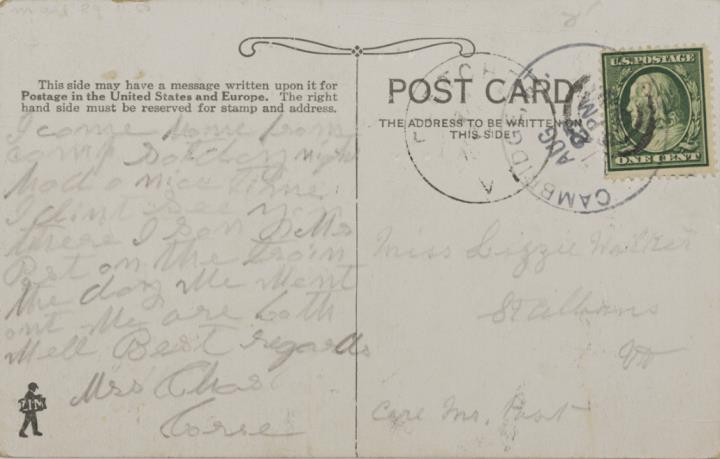 This side may have a message written upon it for
Postage in the United States and Europe. The right
hand side must be reserved for stamp and address.
POST CARD
THE ADDRESS TO BE WRITTEN ON
THIS SIDE
U.S. POSTAGE
ONE CENT
CAMBRIDGE
AUG
PM
I come home from
camp Satday night
had a nice time
I dint see you
there I son Mrs
Post on the train
the day We Went
out We are both
Well Best regards
Mrs Chas
Morse
Miss Lizzie Walker
St Albans
Vt
Care Mr. Post
ZIM